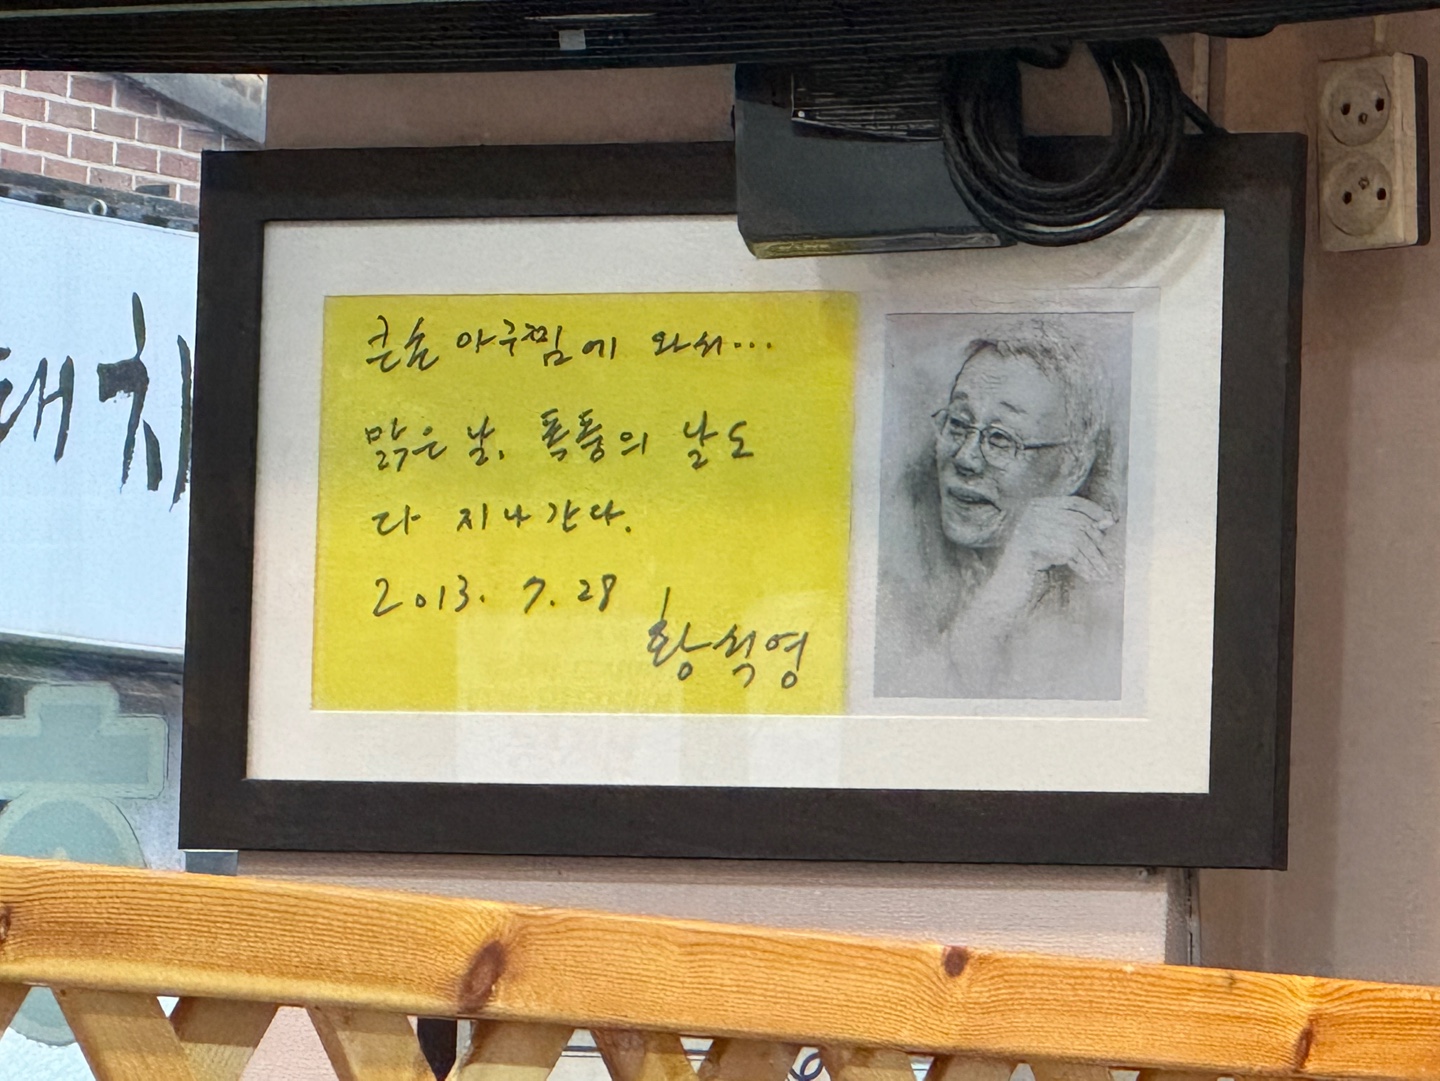 큰손 아구찜에 와서...
맑은 날, 폭풍의 날도
다 지나간다.
2013. 7. 28
황석영
태치